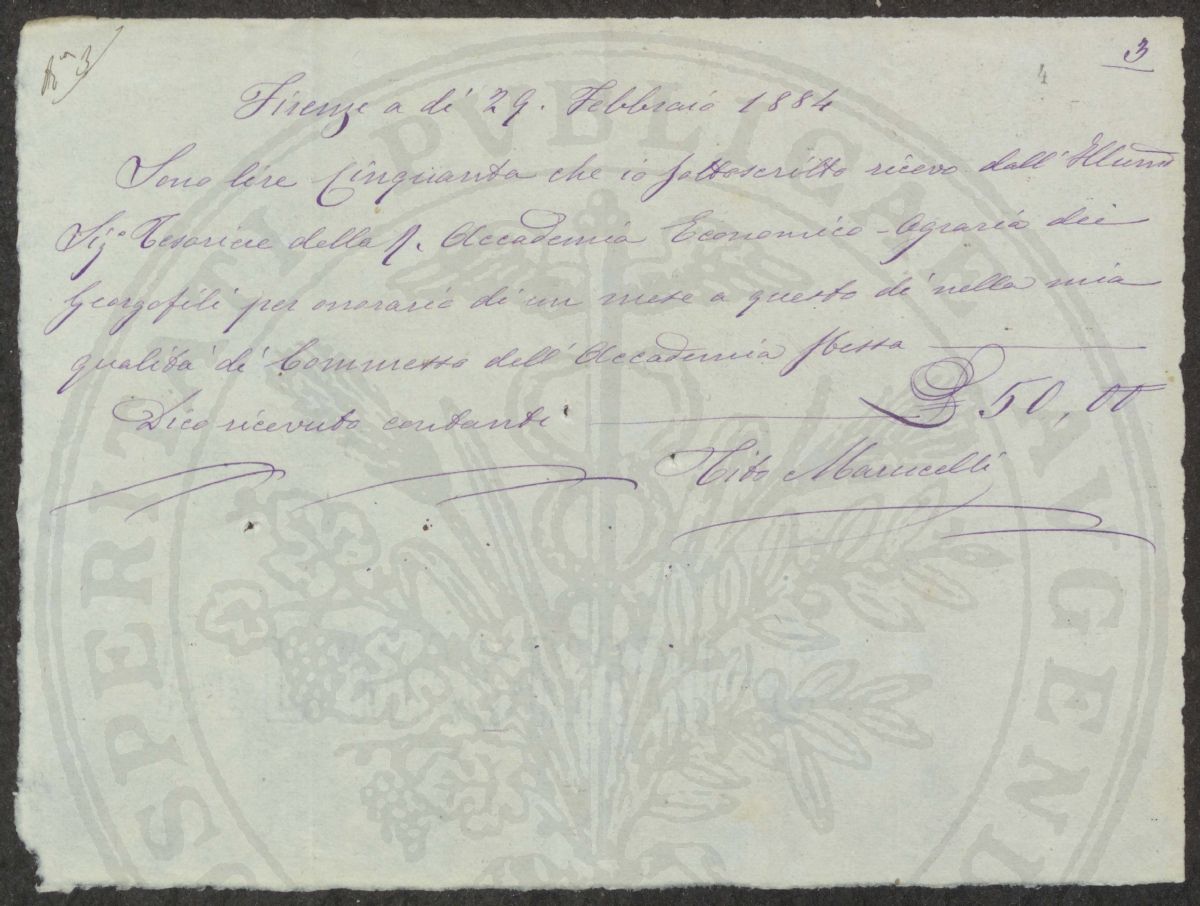 N° 3
3
4
Firenze a dì 29. Febbraio 1884
Sono lire Cinquanta che io sottoscritto ricevo dall' Illmo
Sig.e Tesoriere della R. Accademia Economico-Agraria dei
Georgofili per onorario di un mese a questo dì nella mia
qualità di Commesso dell' Accademia stessa
Dico ricevuto contanti £ 50,00
Tito Marucelli
PROSPERITATI PVBLICAE AVGENDAE